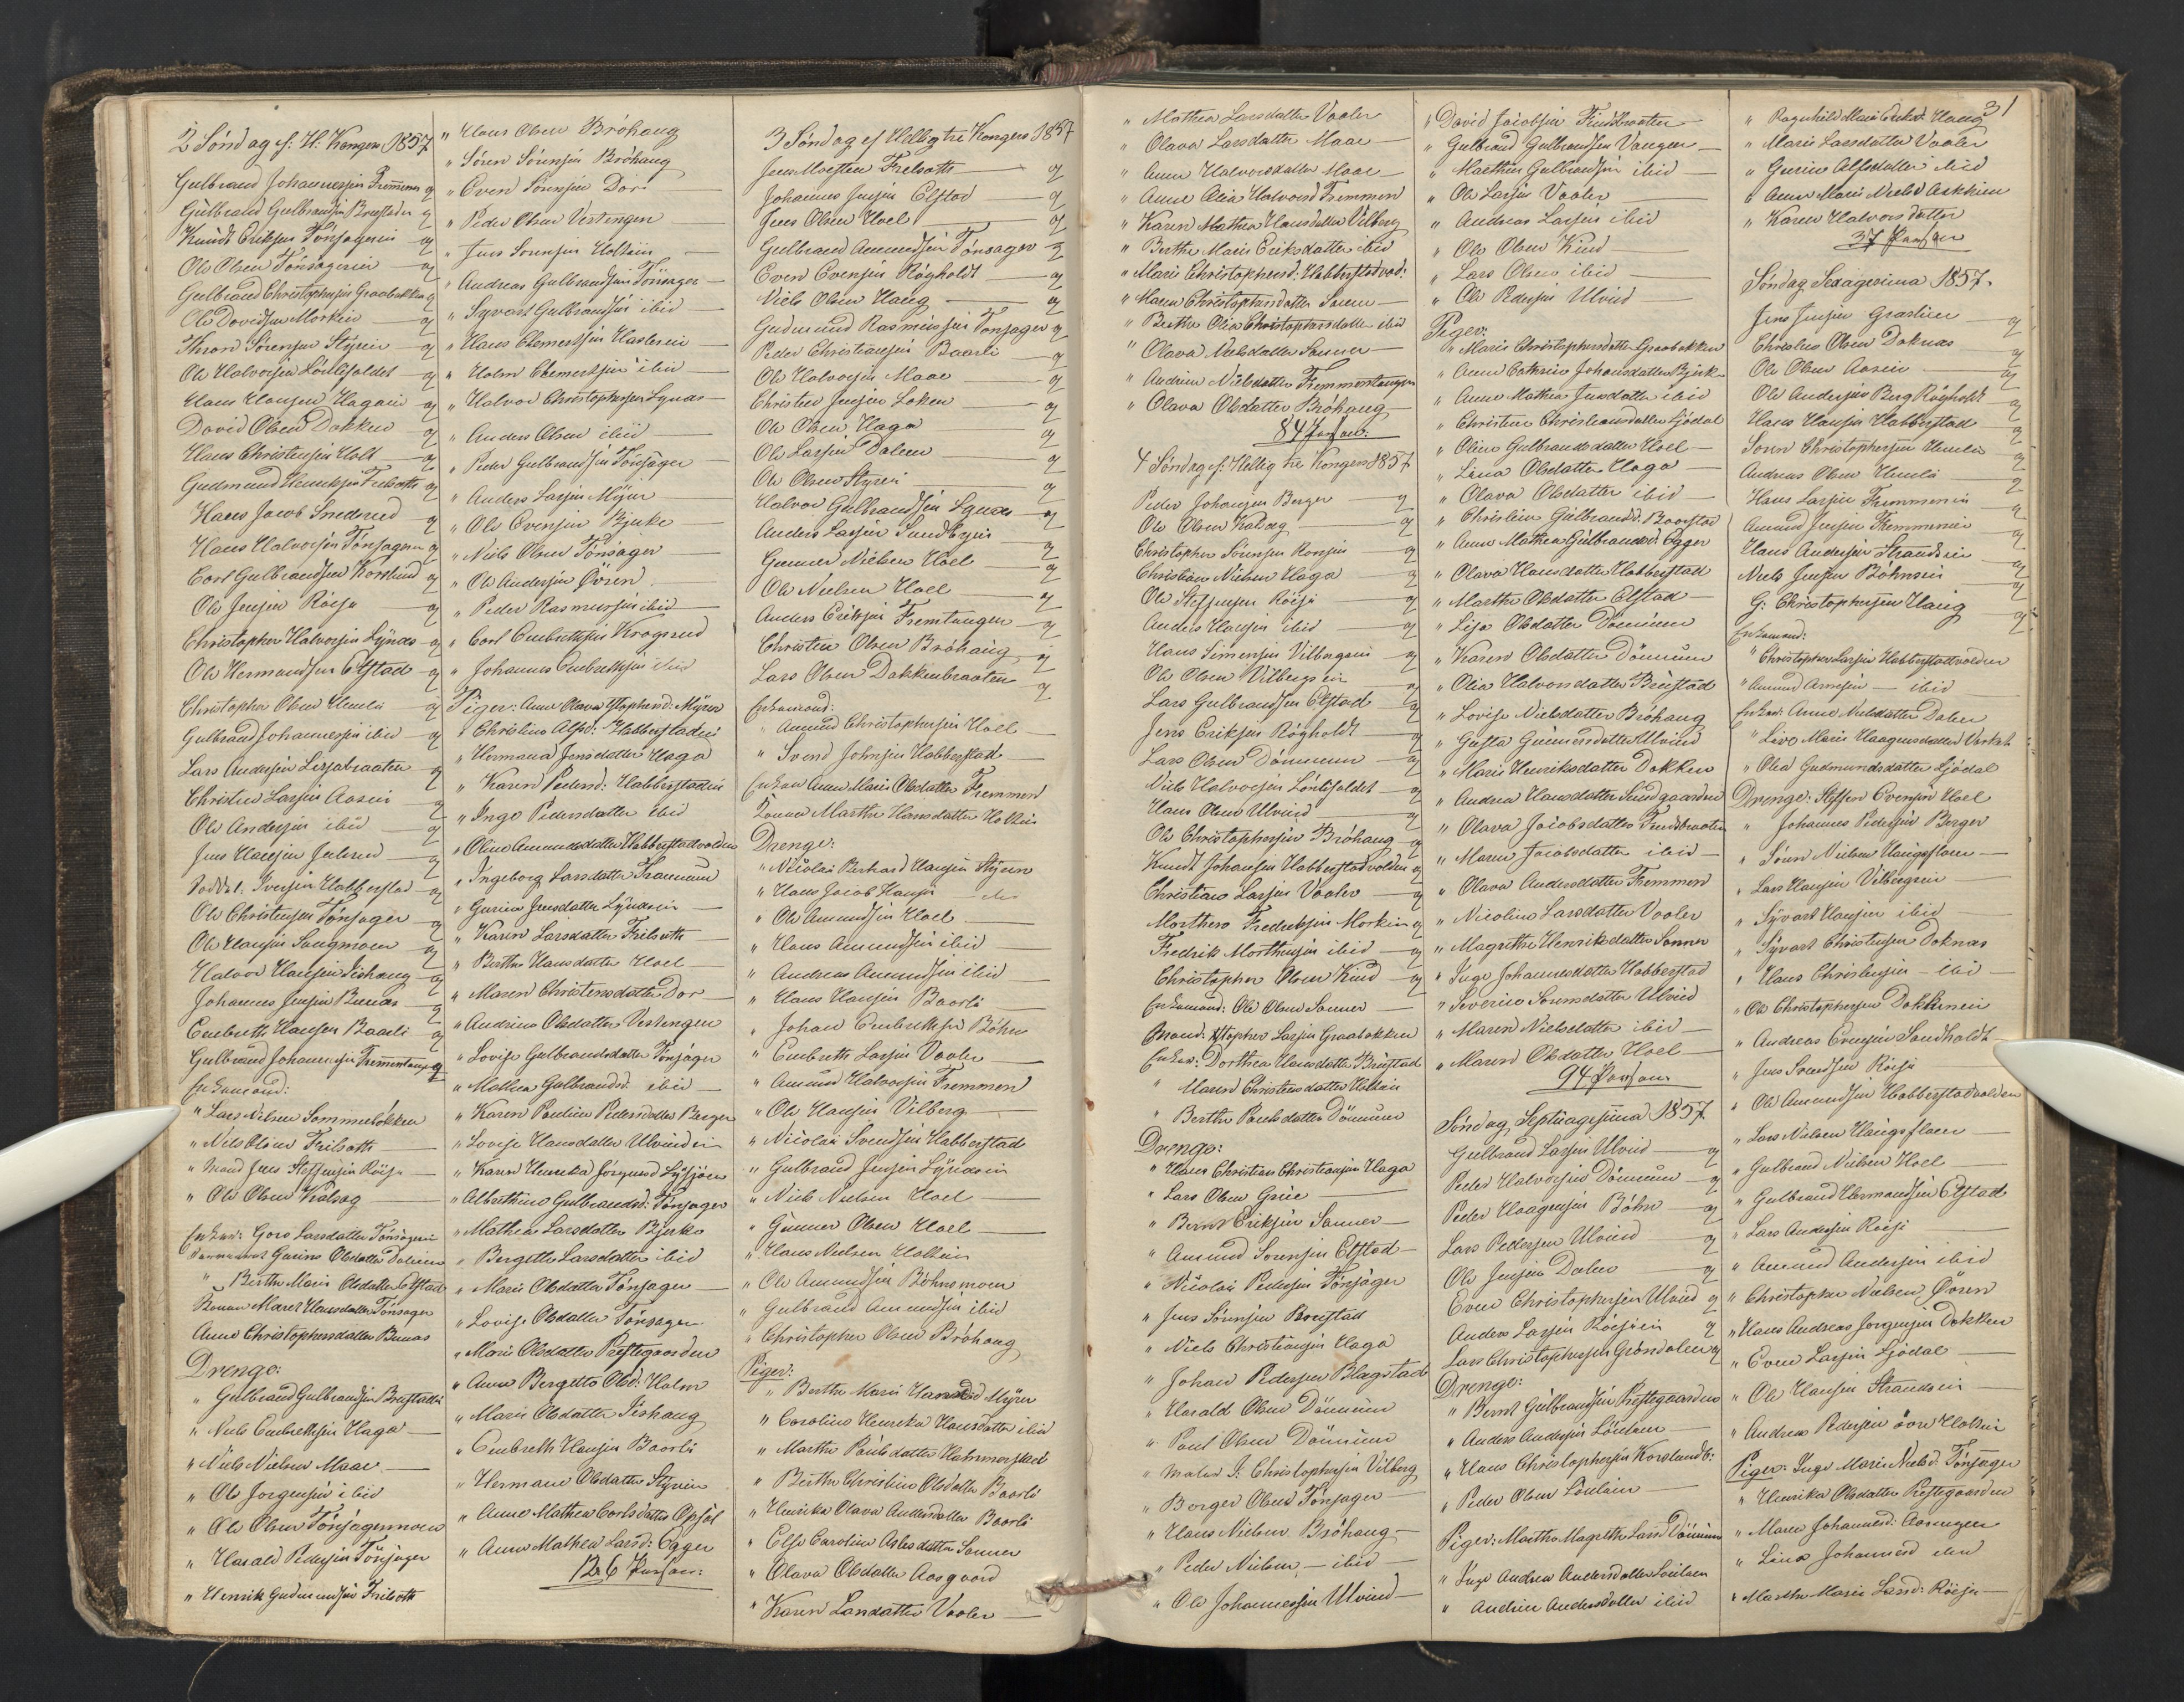 2 Söndag f: H: Kongen 1857
Gulbrand Johannessen Fremmen q
Gulbrand Gulbrandsen Bregstaden q
Knudt Eriksen Tönsagerei q
Ole Olsen Tönsagereie q
Gulbrand Christophersen Graabakken q
Ole Davidsen Morkin q
Thron Sörensen Styrein q
Ole Halvorsen
Hans Hansen Hagaeie q
David Olsen Dokken q
Hans Christensen Holt q
Gudmund Henriksen Frilseth q
Hans Jacob Snedsrud q
Hans Halvorsen Tönsageren q
Carl Gulbrandsen Korslund q
Ole Jensen Röise q
Christopher Halvorsen Lynæs q
Ole Hermandsen Elstad q
Christopher Olsen Hemli q
Gulbrand Johannesen ibid q
Lars Andersen q
Christen Larsen Aasein q
Ole Andersen ibid q
Jens Hansen q
Iversen Habberstad q
Ole Christensen Tönsager q
Ole Hansen Saugmoen q
Halvor Hansen Sishaug q
Johannes Jensen Bunæs q
Embreth Hansen Baarli q
Gulbrand Johannesen q
Enkemand:
" Lars Nilsen
" Nils Olsen Frilseth
" Mand Jens Steffensen Röise
" Ole Olsen
Enker: Goro Larsdatter Tönsagerei
Gurine Olsdatter Dalen
" Berthe Marie Olsdatter Elstad
Konen Maret Hansdatter Tönsager
Anne Christophersdatter Bunæs
Drenge:
" Gulbrand Gulbrandsen Bregstaden
" Niels Embrethsen Haga
" Niels Nielsen Maae
" Ole Jorgensen ibid
" Ole Olsen Tönsagermoen
" Harald Pedersen Tönsager
" Henrik Gudmundsen Frilseth
" Hans Olsen Bröhaug
" Sören Sörensen Bröhaug
" Even Sörensen Dor
" Peder Olsen Vestengen
" Jens Sörensen Holtein
" Andreas Gulbrandsen Tönsager
" Syvart Gulbrandsen ibid
" Hans Clemetsen
" Holm Clemetsen ibid
" Halvor Christophersen Lynæs
" Anders Olsen ibid
" Peder Gulbrandsen Tönsager
" Anders Larsen Myrer
" Ole Evensen Bjerke
" Niels Olsen Tönsager
" Ole Andersen Ören
" Peder Rasmussen ibid
" Carl Embrethsen Krogsrud
" Johannes Embrethsen ibid
Piger: Anne Olava Xstophersd: Myrer
" Christine Alfsd: Habberstadei
" Hermana Jensdatter Haga
" Karen Pedersd: Habberstadei
" Inge Pedersdatter ibid
" Oline Amundsdatter Habberstadvolden
" Ingeborg Larsdatter
" Gurine Jensdatter Lyndsein
" Karen Larsdatter Frilseth
" Berthe Hansdatter Hoel
" Maren Christensdatter Dor
" Andrine Olsdatter Vestengen
" Lovise Gulbrandsdatter Tönsager
" Mathea Gulbrandsd: ibid
" Karen Pauline Pedersdatter Berger
" Lovise Hansdatter Ulvindei
" Karen Henrika Jörgensd
" Albertine Gulbrandsd: Tönsager
" Mathea Larsdatter Bjerke
" Bergette Larsdatter ibid
" Marie Olsdatter Tönsager
" Lovise Olsdatter Tönsager
" Marie Olsdatter Prestegaarden
" Anne Bergette Olsd: Holm
" Marie Olsdatter Sishaug
" Embreth Hansen Baarli
" Hermane Olsdatter Styrein
" Anne Mathea Carlsdatter Opsal
" Anne Mathea Larsd: Egger
126 Person:
3 Söndag ef Hellig tre Kongers 1857
Jens Morten Frilseth q
Johannes Jensen Elstad q
Jens Olsen Hoel q
Gulbrand Amundsen Tönsager q
Even Evensen Röyholdt q
Niels Olsen Haug q
Gudmund Rasmussen Tönsager q
Peder Christiansen Baarli q
Ole Halvorsen Maae q
Christen Jensen Loken q
Ole Olsen Haga q
Ole Larsen Dalen q
Ole Olsen Styrei q
Halvor Gulbrandsen Lynæs q
Anders Larsen Sundbyein q
Gunner Nielsen Hoel q
Ole Nielsen Hoel q
Anders Eriksen Fremtangen q
Christen Olsen Bröhaug q
Lars Olsen Dakkenbraaten q
Enkemand:
" Amund Christophersen Hoel
" Svend Johnsen Habberstad
Enken Anne Marie Olsdatter Fremmen
Konen Marthe Hansdatter Holtein
Drenge:
" Nicolai Berhard Hansen Styren
" Hans Jacob Hansen
" Ole Amundsen Hoel
" Hans Amundsen ibid
" Andreas Amundsen ibid
" Hans Hansen Baarli
" Johan Embrethsen Böhn
" Embreth Larsen Vaaler
" Amund Halvorsen Fremmen
" Ole Hansen Vilberg
" Nicolai Svendsen Habberstad
" Gulbrand Jensen Lyndsein
" Niels Nielsen Hoel
" Gunner Olsen Hoel
" Hans Nielsen Holtein
" Ole Amundsen Böhnsmoen
" Gulbrand Amundsen ibid
" Christopher Olsen Bröhaug
Piger:
" Berthe Marie Hansd Myrer
" Caroline Henrika Hansdatter ibid
" Marthe Paulsdatter Hammerstad
" Berthe Christine Olsdatter Baarli
" Henrika Olava Andersdatter Baarli
" Else Caroline Aslesdatter Sanner
" Olava Olsdatter Aasgaard
" Karen Larsdatter Vaaler
31
" Mathea Larsdatter Vaaler
" Olava Larsdatter Maae
" Anne Halvorsdatter Maae
" Anne Olia Halvorsd Fremmen
" Karen Mathea Hansdatter Vilberg
" Berthe Marie Eriksdatter ibid
" Marie Christophersd: Habberstadvol:
" Maren Christophersdatter Sanner
" Berthe Olia Christophersdatter ibid
" Olava Nielsdatter Sanner
" Andrine Nielsdatter Fremmerstangen
" Olava Olsdatter Bröhaug
84 Person:
4 Söndag f: Hellig tre Kongers 1857
Peder Johansen Berger q
Ole Olsen q
Christopher Sörensen q
Christian Nielsen Haga q
Ole Steffensen Röise q
Anders Hansen ibid q
Hans Simensen Vilbergsein q
Ole Olsen Vilbergsein q
Lars Gulbrandsen Elstad q
Jens Eriksen Röyholdt q
Lars Olsen Dönnum q
Niels Halvorsen q
Hans Olsen Ulvind q
Ole Christophersen Bröhaug q
Knudt Johansen Habberstadvolden q
Christian Larsen Vaaler q
Morthen Fredriksen Morkin q
Fredrik Morthensen ibid q
Christopher Olsen Kind q
Enkemand: Ole Olsen Sanner
Mand: Xstopher Larsen Graabakken
Enker: Dorthea Hansdatter Bregstad
" Maren Christensdatter Holtein
" Berthe Paulsdatter Dönnum
Drenge:
" Hans Christian Christiansen Haga
" Lars Olsen Grue
" Bernt Eriksen Sanner
" Amund Sörensen Elstad
" Nicolai Pedersen Tönsager
" Jens Sörensen Bregstad
" Niels Christiansen Haga
" Johan Pedersen Blegstad
" Harald Olsen Dönnum
" Paul Olsen Dönnum
" Maler J: Christophersen Vilberg
" Borger Olsen Tönsager
" Hans Nielsen Bröhaug
" Peder Nielsen ibid
" Ole Johannessen Ulvind
" David Jacobsen
" Gulbrand Gulbrandsen Vangen
" Marthin Gulbrandsen ibid
" Ole Larsen Vaaler
" Andreas Larsen ibid
" Ole Olsen Kind
" Lars Olsen ibid
" Ole Pedersen Ulvind
Piger:
" Marie Christophersdatter Graabakken
" Anne Cathrine Johansdatter Bjerke
" Anne Mathea Jensdatter ibid
" Christine Christiansdatter Sjödal
" Oline Gulbrandsdatter Hoel
" Lina Olsdatter Haga
" Olava Olsdatter ibid
" Christine Gulbrandsd: Baarstad
" Anne Mathea Gulbrandsd: Egger
" Olava Hansdatter Habberstad
" Marthe Olsdatter Elstad
" Lisa Olsdatter Dönnum
" Karen Olsdatter Dönnum
" Olia Halvorsdatter Bregstad
" Lovise Nielsdatter Bröhaug
" Gusta Gunnersdatter Ulvind
" Marie Henriksdatter Dokken
" Andrea Hansdatter Sundgaarden
" Olava Jacobsdatter
" Maren Jacobsdatter ibid
" Olava Andersdatter Fremmen
" Nicoline Larsdatter Vaaler
" Magrethe Henriksdatter Sanner
" Inge Johannesdatter Habberstad
" Severine Sörensdatter Ulvind
" Maren Nielsdatter ibid
" Maren Olsdatter Hoel
94 Person
Söndag Septuagesima 1857
Gulbrand Larsen Ulvind q
Peder Halvorsen Dönnum q
Peder Haagensen Böhn q
Lars Pedersen Ulvind q
Ole Jensen Dalen q
Even Christophersen Ulvind q
Anders Larsen Röisein q
Lars Christophersen Gröndalen q
Drenge:
" Bernt Gulbrandsen Prestegaarden
" Anders Andersen
" Hans Christophersen Korslundb:
" Peder Olsen
Piger: Marthe Magrethe Larsd Dönnum
" Inge Andrea Andersdatter
" Andrine Andersdatter ibid
" Ragnhild Marie Eriksd: Haug
" Marie Larsdatter Vaaler
" Gurine Alfsdatter ibid
" Anne Marie Nielsd
" Karen Halvorsdatter
37 Person
Söndag Sexagesima 1857.
Jens Jensen q
Christen Olsen Doknæs q
Ole Olsen Aasein q
Ole Andersen Berg Röyholdt q
Hans Hansen Habberstad q
Sören Christophersen Hemli q
Andreas Olsen Hemli q
Hans Larsen Fremmenein q
Amund Jensen Fremmenein q
Hans Andersen Strandsein q
Niels Jensen Böhnsein q
G: Christophersen Haug q
Enkemand:
" Christopher Larsen Habberstadvolden
" Amund Arnesen ibid
Enker: Anne Nielsdatter Dalen
" Live Marie Haagensdatter
" Olea Gudmundsdatter Sjödal
Drenge: Steffen Evensen Hoel
" Johannes Pedersen Berger
" Sören Nielsen Haugsflaen
" Lars Hansen Vilbergsein
" Syvart Hansen ibid
" Syvart Christensen Doknæs
" Hans Christensen ibid
" Ole Christophersen Dokkenein
" Andreas Evensen Sandholdt
" Jens Svendsen Röise
" Ole Amundsen Habberstadvolden
" Lars Nielsen Haugsflaen
" Gulbrand Nielsen Hoel
" Gulbrand Hermandsen Elstad
" Lars Andersen Röise
" Amund Andersen ibid
" Christopher Nielsen Ören
" Hans Andreas Jorgensen Dokken
" Even Larsen Sjödal
" Ole Hansen Strandsein
" Andreas Pedersen övre Holtein
Piger: Inge Marie Nielsd. Tönsager
" Henrika Olsdatter Prestegaarden
" Maren Johannesd:
" Lina Johannesd ibid
" Marthe Marie Larsd: Röise